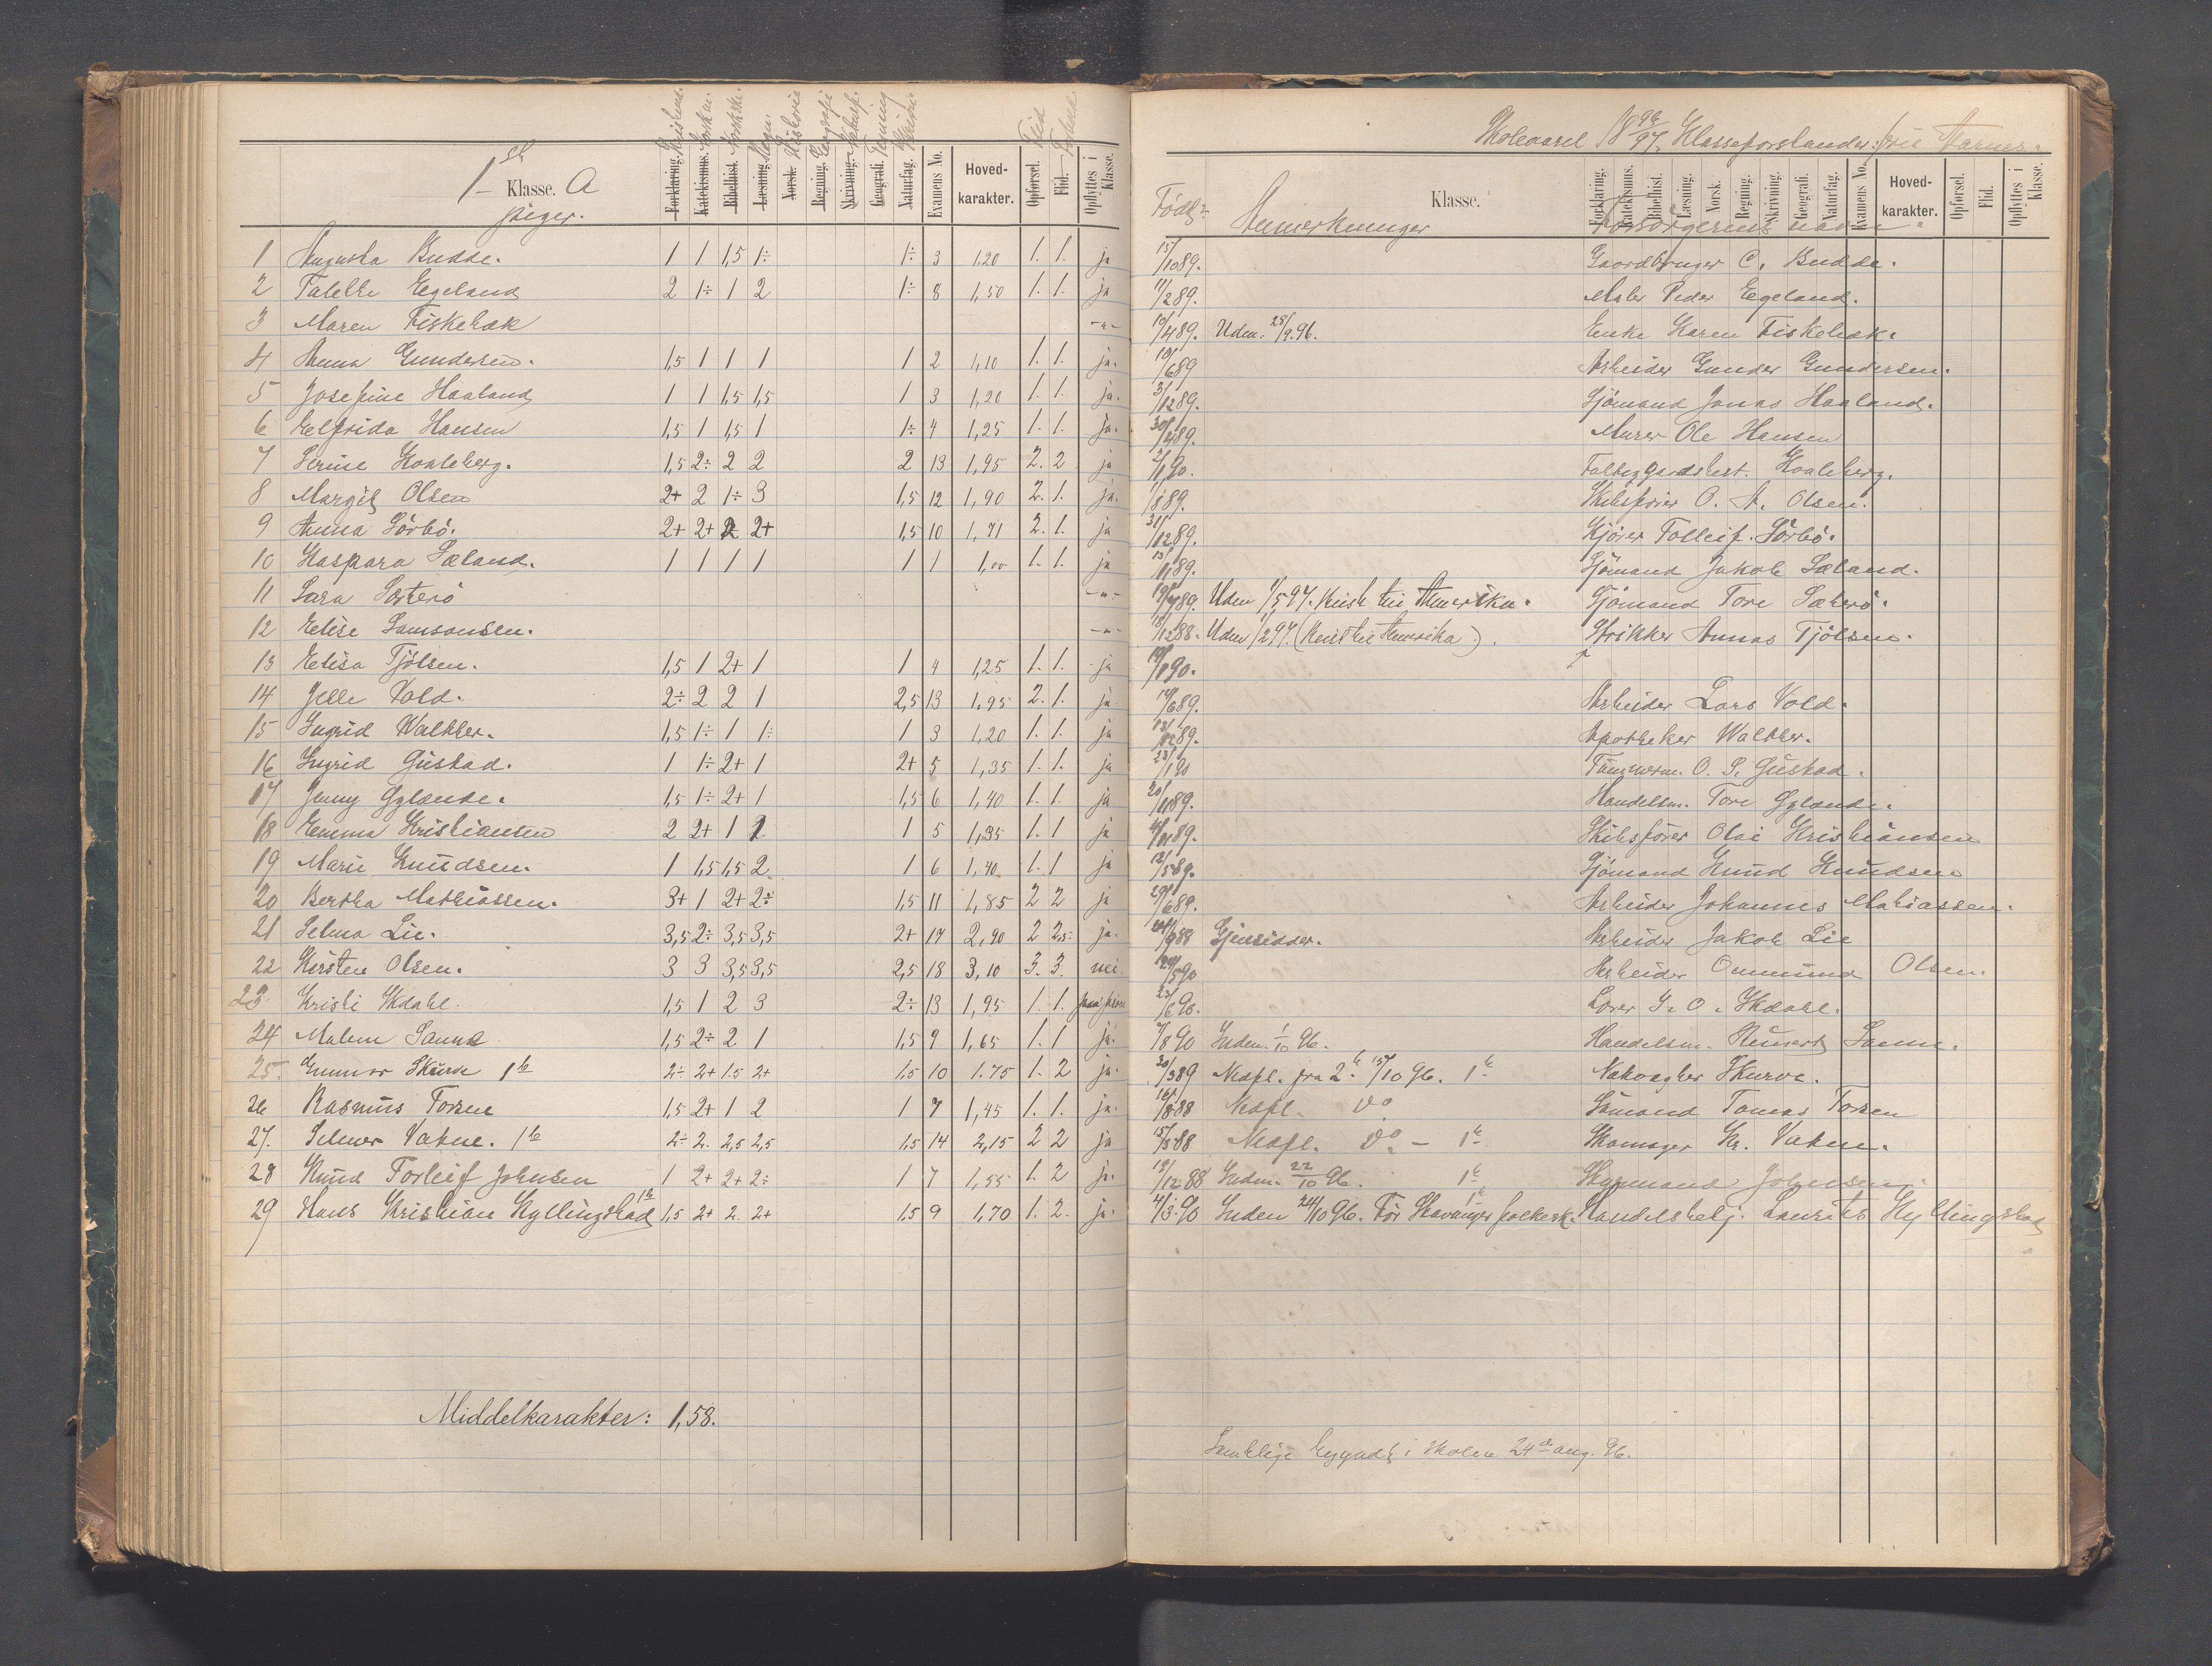 Kristend.
Norsk m.
Norsk sk.
Regn.
Historie
Geografi
Naturf.
Tegning
Skrivn.
Flid
Forhold
1ste Klasse. A
piger.
Forklaring. Katekismus. Bibelhist. Læsning. Norsk. Regning. Skrivning. Geografi. Naturfag. Examens No. Hoved-karakter. Opførsel. Flid. Opflyttes i Klasse.
1 Augusta Budde. 1 1 1,5 1÷ 1÷ 3 1,20 1. 1. ja
2 Talette Egeland 2 1÷ 1 2 1÷ 8 1,50 1. 1. ja
3 Maren Fiskebæk -"-
4 Anna Gundersen. 1,5 1 1 1 1 2 1,10 1. 1. ja.
5 Josefine Haaland 1 1 1,5 1,5 1 3 1,20 1. 1. ja.
6 Elfrida Hansen 1,5 1 1,5 1 1÷ 4 1,25 1. 1. ja.
7 Serine Koaleberg. 1,5 2÷ 2 2 2 13 1,95 2. 2 ja
8 Margit Olsen 2+ 2 1÷ 3 1,5 12 1,90 2. 1. ja.
9 Anna Sörbö. 2+ 2+ 2 2+ 1,5 10 1,71 2. 1. ja
10 Kaspara Sæland. 1 1 1 1 1 1 1,00 1. 1. ja
11 Sara Sæterö -"-
12 Elise Samsonsen. -"-
13 Elisa Tjölsen. 1,5 1 2+ 1 1 4 1,25 1. 1. ja
14 Jelle Vold. 2÷ 2 2 1 2,5 13 1,95 2. 1. ja
15 Ingrid Walther. 1,5 1÷ 1 1÷ 1 3 1,20 1. 1. ja
16 Ingrid Gustad. 1 1÷ 2+ 1 2+ 5 1,35 1. 1. ja
17 Jenny Gylande. 1,5 1÷ 2+ 1 1,5 6 1,40 1. 1. ja
18 Emma Kristiansen 2 2+ 1 1 1 5 1,35 1. 1 ja
19 Marie Knudsen. 1 1,5 1,5 2 1 6 1,40 1. 1 ja
20 Bertha Mathiassen. 3+ 1 2+ 2÷ 1,5 11 1,85 2 2 ja
21 Selma Lie. 3,5 2÷ 3,5 3,5 2+ 17 2,90 2 2,5 ja.
22 Kirsten Olsen. 3 3 3,5 3,5 2,5 18 3,10 3. 3. nei.
23 Kristi Skdahl. 1,5 1 2 3 2÷ 13 1,95 1. 1. paa pröve
24 Malene Sanne 1,5 2÷ 2 1 1,5 9 1,65 1. 1 ja.
25. Gunnar Skurve 1b 2÷ 2+ 1.5 2+ 1.5 10 1.75 1. 2 ja.
26 Rasmus Torsen 1,5 2+ 1 2 1 7 1,45 1. 1. ja.
27. Selmer Vatne. 1b 2÷ 2. 2,5 2,5 1,5 14 2,15 2 2 ja
28 Knud Torleif Johnsen 1 2+ 2+ 2÷ 1 7 1,55 1. 2 ja.
29 Hans Kristian Kyllingstad 1b 1,5 2+ 2. 2+ 1,5 9 1,70 1. 2. ja.
Middelkarakter: 1,58.
Skoleaaret 1896/97. Klasseforstander:
Född Anmerkninger Klasse. Forsörgerens navn
Forklaring. Katekismus. Bibelhist. Læsning. Norsk. Regning. Skrivning. Geografi. Naturfag. Examens No. Hoved-karakter. Opførsel. Flid. Opflyttes i Klasse.
15/10 89. Gaardbruger C. Budde.
11/2 89. Maler Peder Egeland.
10/4 89. Udm. 28/9. 96. Enke Karen Fiskebæk.
10/6 89 Arbeider Gunder Gundersen.
3/12 89. Sjömand Jonas Haaland.
30/4 89. Murer Ole Hansen
2/1 90. Koaleberg.
1/8 89. Skibsförer O. A. Olsen.
31/12 89. Kjörer Tolleif Sörbö.
13/11 89. Sjömand Jakob Sæland.
19/4 89. Udm 1/5 97. Reist til Amerika. Sjömand Tore Sæterö.
18/12 88. Udm 1/2 97. (Reist til Amerika). Strikker Annas Tjölsen.
19/8 90.
14/6 89. Arbeider Lars Vold.
13/12 89. Apotheker Walther.
23/1 90 Tömmerm. O. S. Gustad.
20/11 89. Handelsm. Tore Gylande.
4/11 89. Skibsförer Olai Kristiansen
12/5 89. Sjömand Knud Knudsen
29/6 89. Arbeider Johannes Matiassen.
24/9 88 Gjensidder. Arbeider Jakob Lie
24/5 90 Arbeider Ommund Olsen.
23/6 90. Lærer S. O. Skdahl.
7/8 90 Indm. 1/10 96. Handelsm. Reinert Sanne.
30/3 89 Nedfl. fra 2b 15/10 96. 1b Natvægter Skurve.
16/8 88 Nedfl. do Sömand Tomas Torsen
15/3 88 Nedfl. do - 1b Skomager Kr. Vatne.
19/12 88 Indm. 22/10 96. 1b Johnsen.
4/3 90 Inden 24/10 96. För Stavanger folkesk. 1b Handelsbetj. Laurits Kyllingstad
Samtlige begyndt i skolen 24de aug. 96.